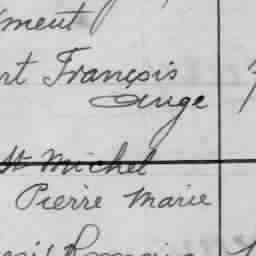 ment
rt François
Ange
St Michel
Pierre Marie
Romain